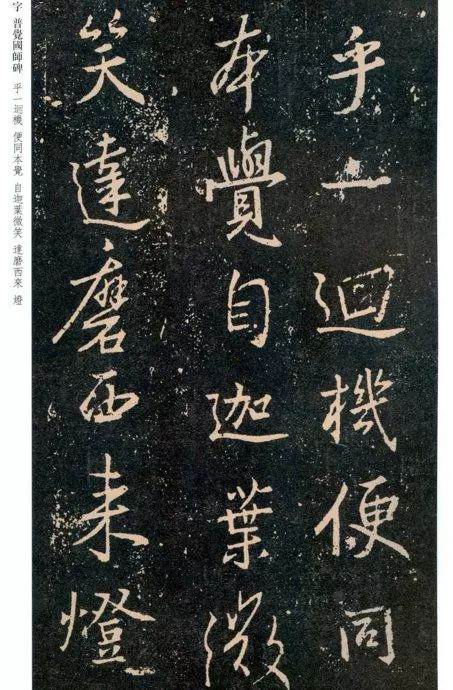 乎一迴機便同
本覺自迦葉微
笑達磨西来燈
字 普覺國師碑 乎一迴機 便同本覺 自迦葉微笑 達磨西來 燈